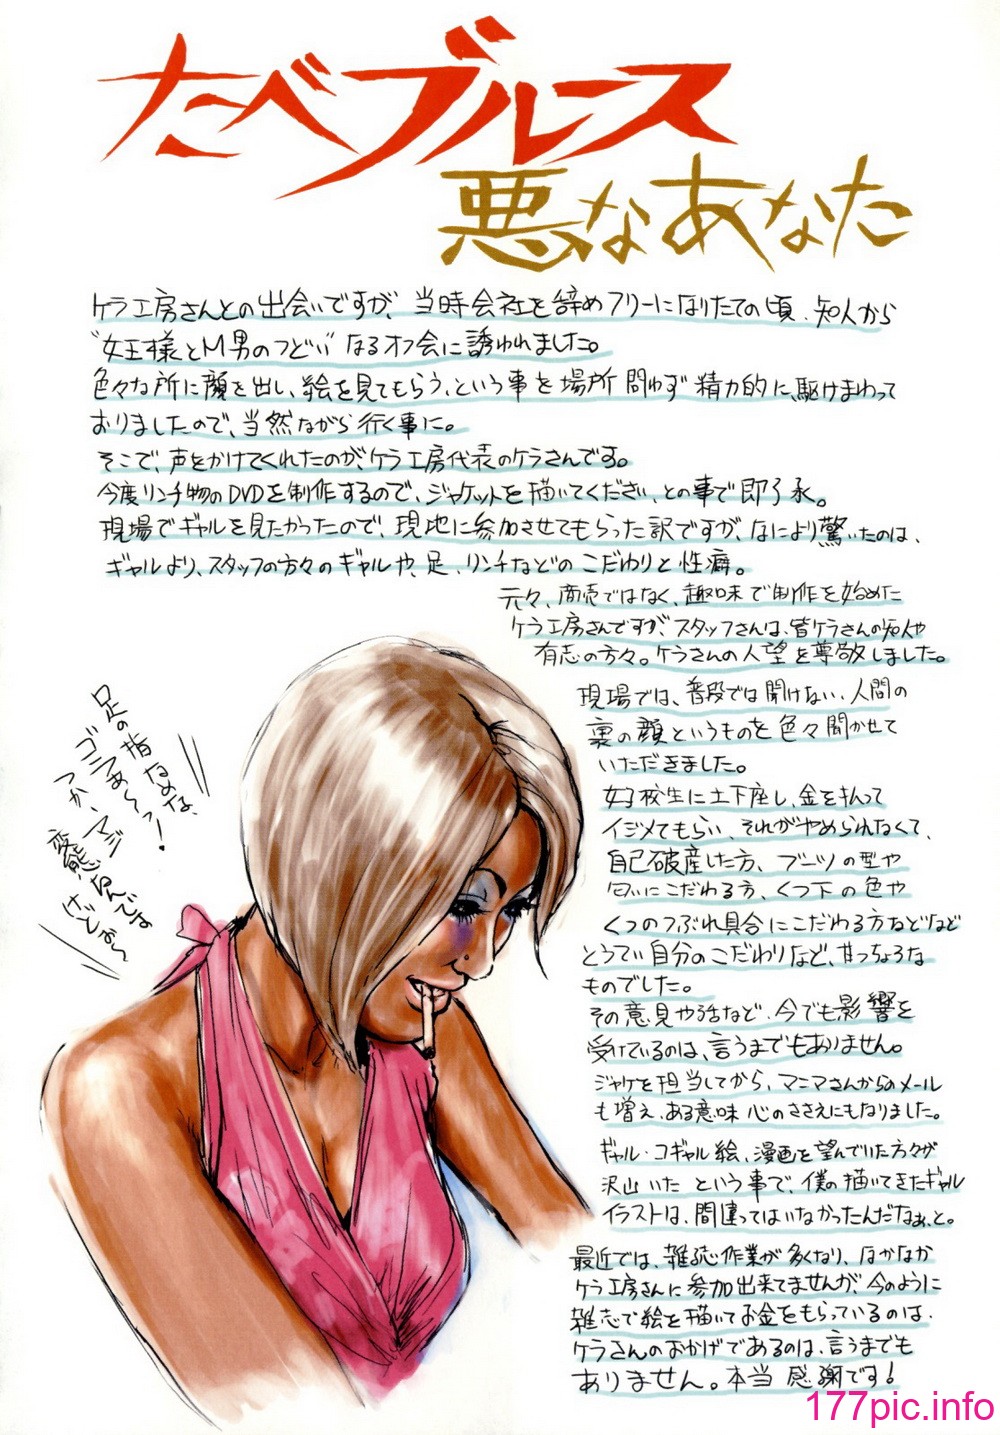 たべブルース
悪なあなた
ケラ工房さんとの出会いですが、当時会社を辞めフリーになりたての頃、知人から
"女王様とM男のつどい"なるオフ会に誘われました。
色々な所に顔を出し、絵を見てもらう、という事を場所問わず精力的に、駆けまわって
おりましたので、当然ながら行く事に。
そこで、声をかけてくれたのが、ケラ工房代表のケラさんです。
今度リンチ物のDVDを制作するので、ジャケットを描いてください、との事で即了承。
現場でギャルを見たかったので、現地に参加させてもらった訳ですが、なにより驚いたのは、
ギャルより、スタッフの方々のギャルや、足、リンチなどのこだわりと性癖。
元々、商売ではなく、趣味で制作を始めた
ケラ工房さんですが、スタッフさんは、皆ケラさんの知人や
有志の方々。ケラさんの人望を尊敬しました。
現場では、普段では聞けない、人間の
裏の顔というものを色々聞かせて
いただきました。
女子校生に土下座し、金を払って
イジメてもらい、それがやめられなくて、
自己破産した方、ブーツの型や
匂いにこだわる方、くつ下の色や
くつのつぶれ具合にこだわる方などなど
とうてい自分のこだわりなど、甘っちょろな
ものでした。
その意見や話など、今でも影響を
受けているのは、言うまでもありません。
ジャケを担当してから、マニマさんからのメール
も増え、ある意味心のささえにもなりました。
ギャル・コギャル絵、漫画を望んでいた方々が
沢山いたという事で、僕の描いてきたギャル
イラストは、間違ってはいなかったんだなぁ、と。
最近では、雑誌作業が多くなり、なかなか
ケラ工房さんに参加出来てませんが、今のように
雑志で絵を描いてお金をもらっているのは、
ケラさんのおかげであるのは、言うまでも
ありません。本当感謝です!
足の指なめな、
ゴラァ〜っ!
つか、マジ
変態
177pic.info